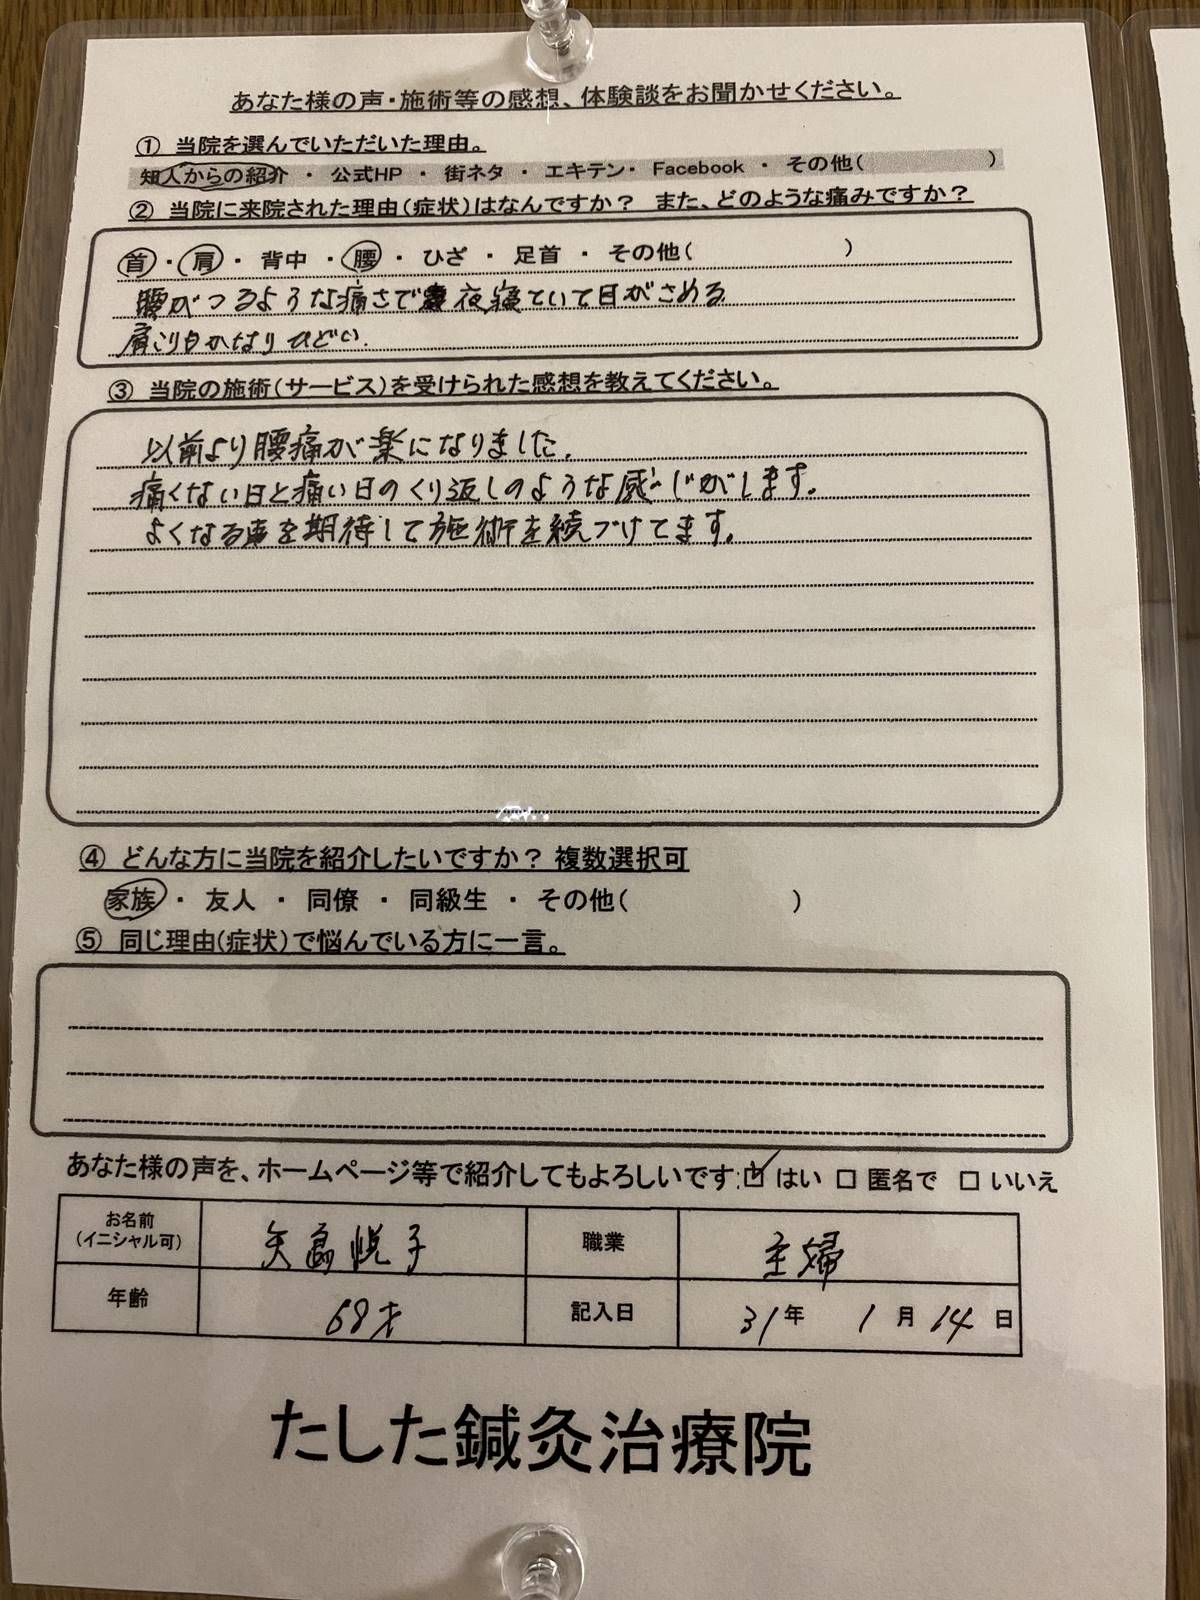 あなた様の声・施術等の感想、体験談をお聞かせください。
① 当院を選んでいただいた理由。
知人からの紹介 ・ 公式HP ・ 街ネタ ・ エキテン・ Facebook ・ その他( )
② 当院に来院された理由(症状)はなんですか? また、どのような痛みですか?
首 ・ 肩 ・ 背中 ・ 腰 ・ ひざ ・ 足首 ・ その他( )
腰がつるような痛さで夜寝ていて目がさめる
肩こりもかなりひどい.
③ 当院の施術(サービス)を受けられた感想を教えてください。
以前より腰痛が楽になりました.
痛くない日と痛い日のくり返しのような感じがします。
よくなる事を期待して施術を続づけてます。
④ どんな方に当院を紹介したいですか? 複数選択可
家族 ・ 友人 ・ 同僚 ・ 同級生 ・ その他( )
⑤ 同じ理由(症状)で悩んでいる方に一言。
あなた様の声を、ホームページ等で紹介してもよろしいです: ☑ はい □ 匿名で □ いいえ
お名前 (イニシャル可) 矢島悦子 職業 主婦
年齢 68才 記入日 31年 1月 14日
たした鍼灸治療院